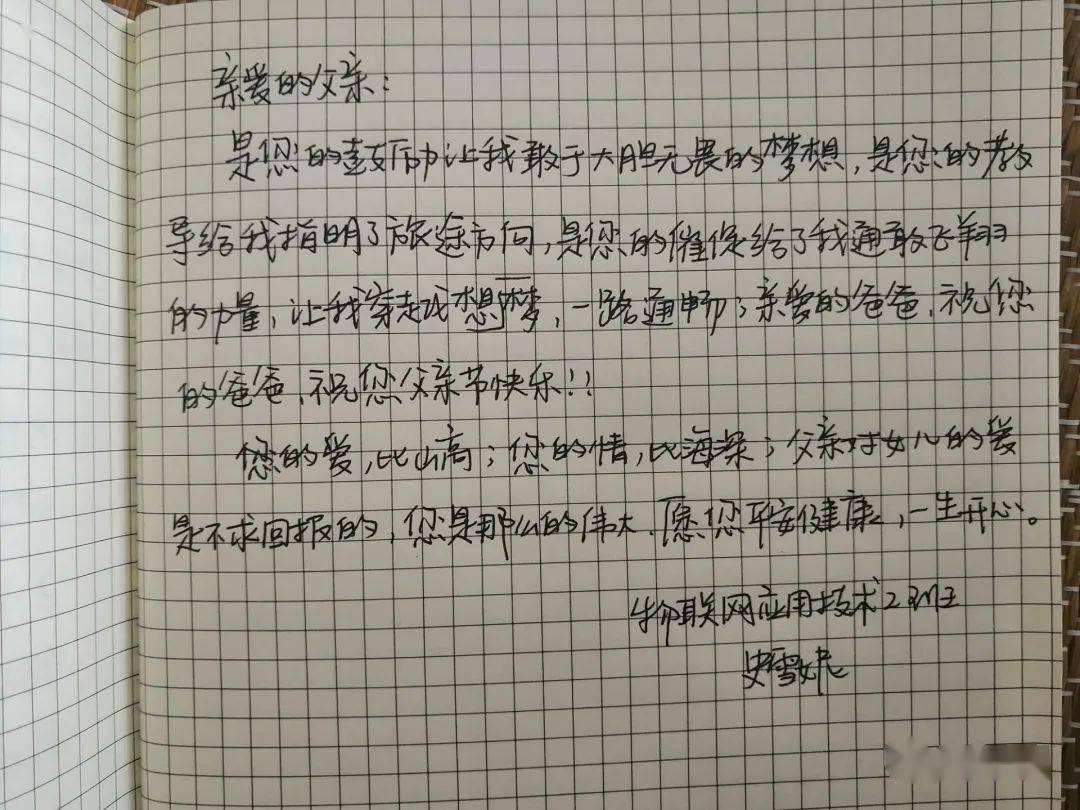 亲爱的父亲：
是您的鼓励让我敢于大胆无畏的梦想，是您的教
导给我指明了旅途方向，是您的催促给了我通敢飞翔
的力量，让我穿越成想梦，一路通畅；亲爱的爸爸，祝您
的爸爸，祝您父亲节快乐!!
您的爱，比山高；您的情，比海深；父亲对女儿的爱
是不求回报的，您是那么的伟大，愿您平安健康，一生开心。
物联网应用技术2班
史雪妮